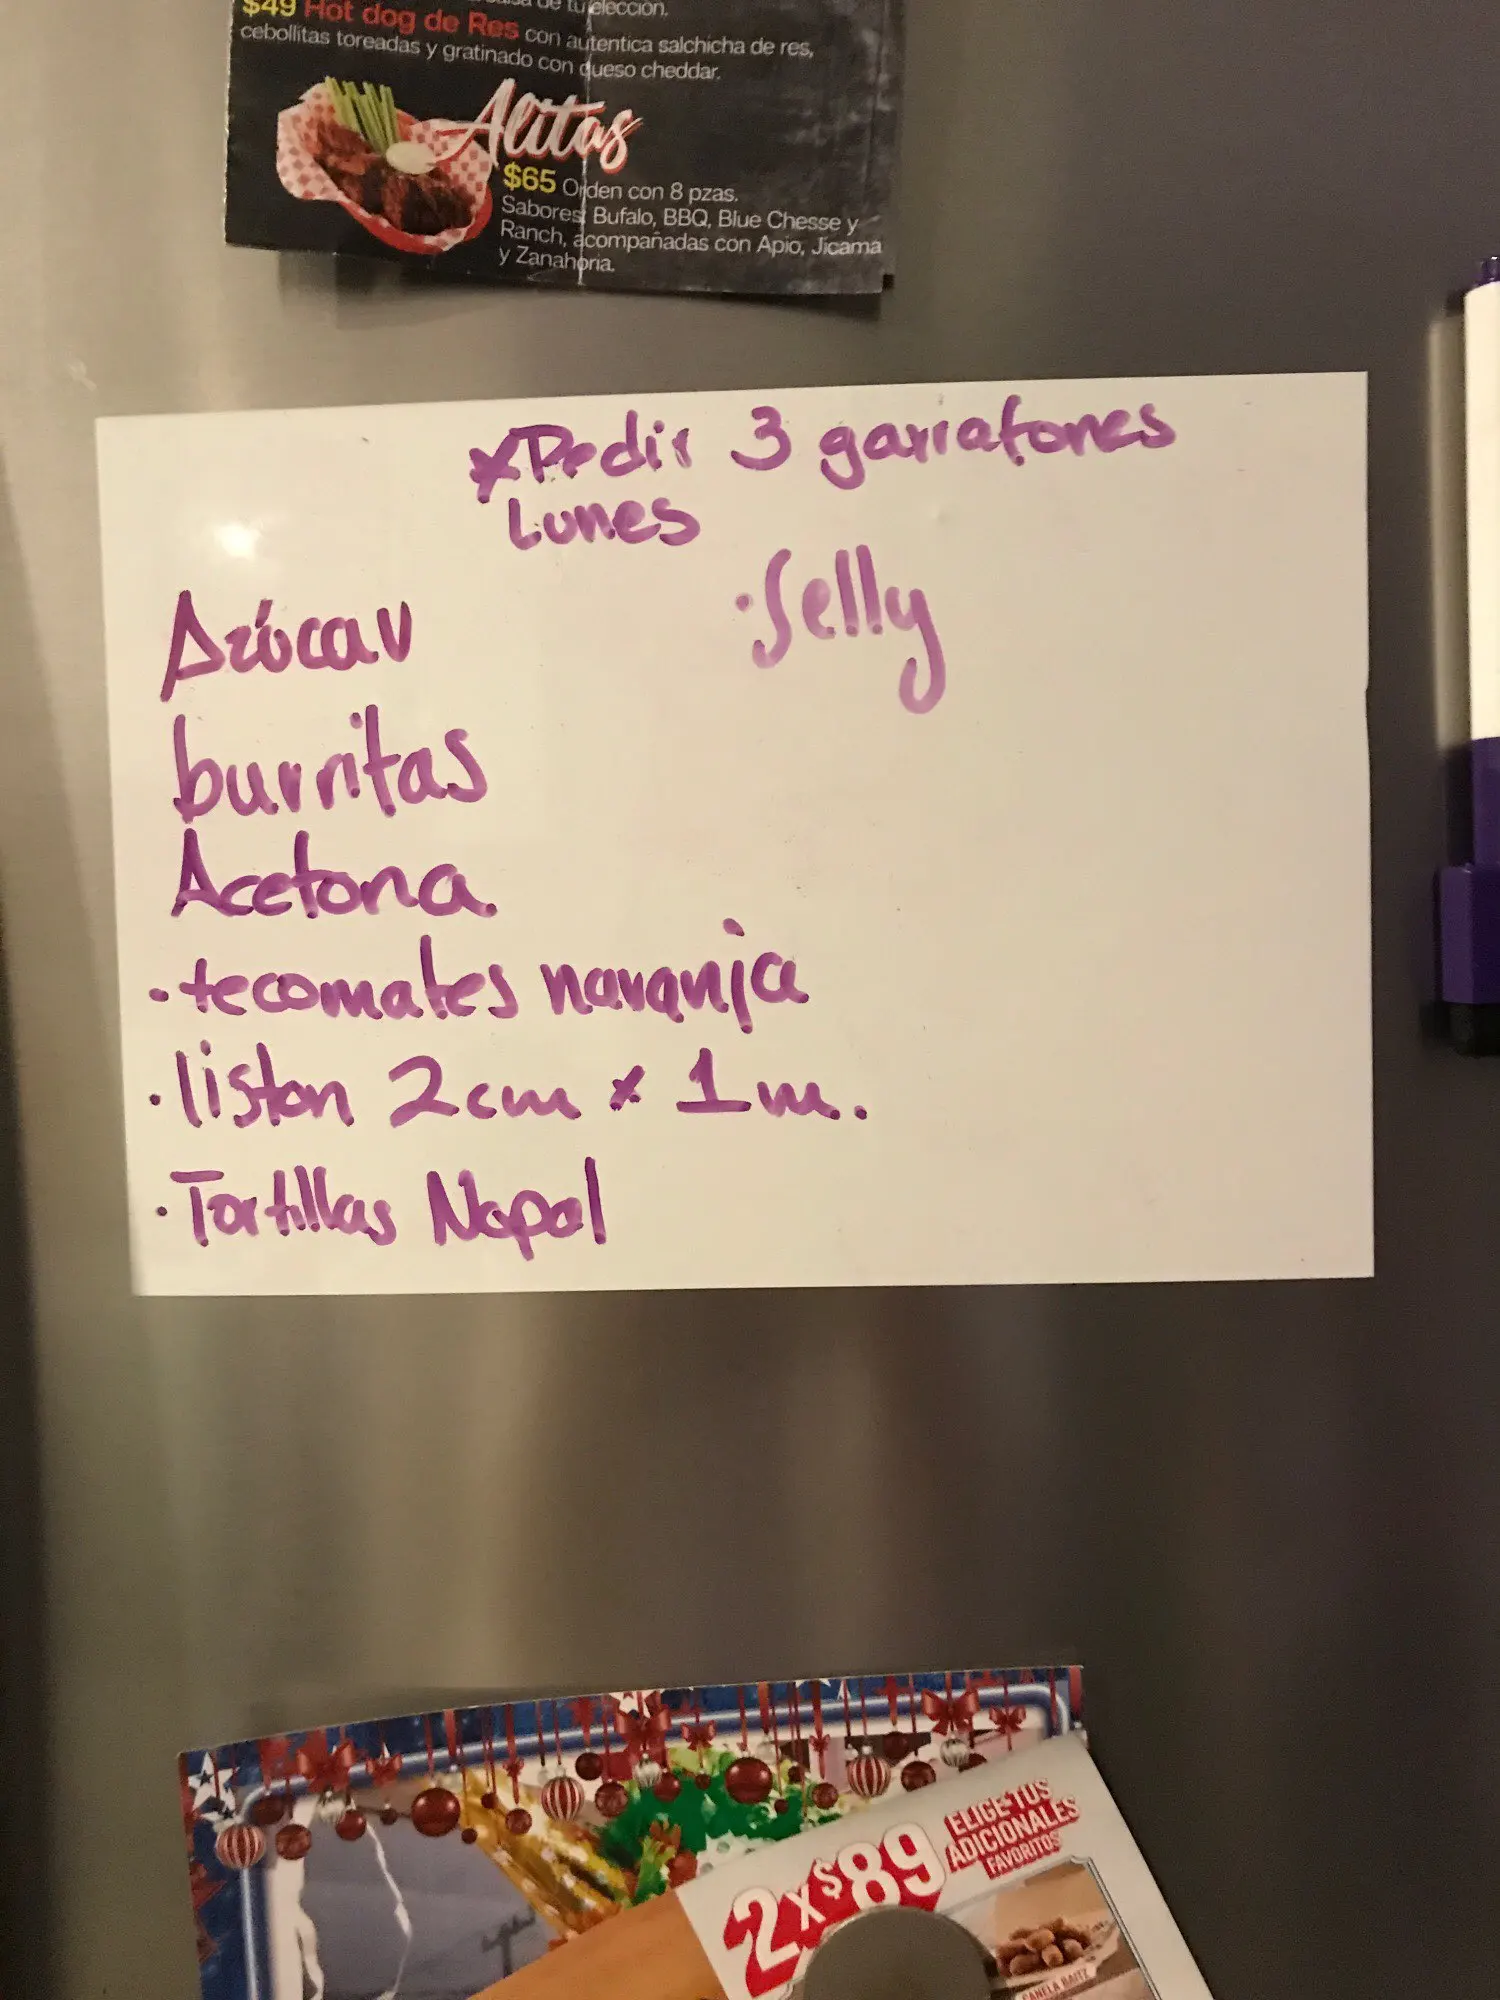 de tu elección.
$49 Hot dog de Res con autentica salchicha de res,
cebollitas toreadas y gratinado con queso cheddar.
Alitas
$65 Orden con 8 pzas.
Sabores: Bufalo, BBQ, Blue Chesse y
Ranch, acompañadas con Apio, Jicama
y Zanahoria.
*Pedir 3 garrafones
Lunes
·Jelly
Azúcar
burritas
Acetona.
·tecomates naranja
·liston 2cm x 1m.
·Tortillas Nopal
2x$89
ELIGE TUS
ADICIONALES
FAVORITOS
CANELA BAITZ